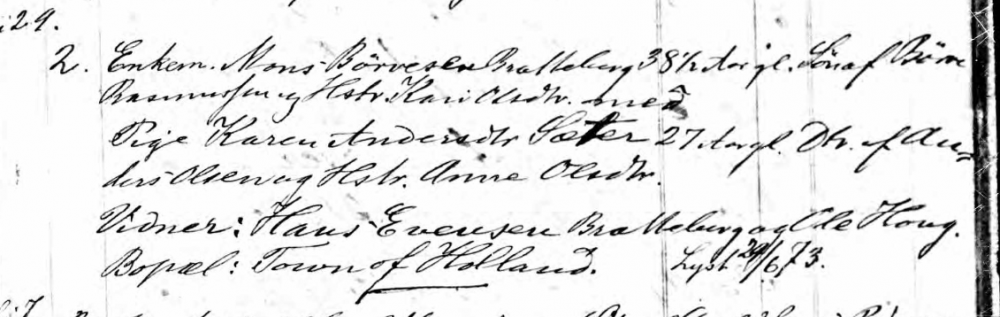 i 29.
2. Enkem. Mons Börvesen Bratteberg 38½ Aar gl. Sön af Börve
Rasmussen og Hstr. Kari Olsdtr. med
Pige Karen Andersdtr Sæter 27 Aar gl. Dtr. af An-
ders Olsen og Hstr. Anne Olsdtr.
Vidner: Hans Evensen Bratteberg og Ole Houg.
Bopæl: Town of Holland. Lyst 29/6 73.